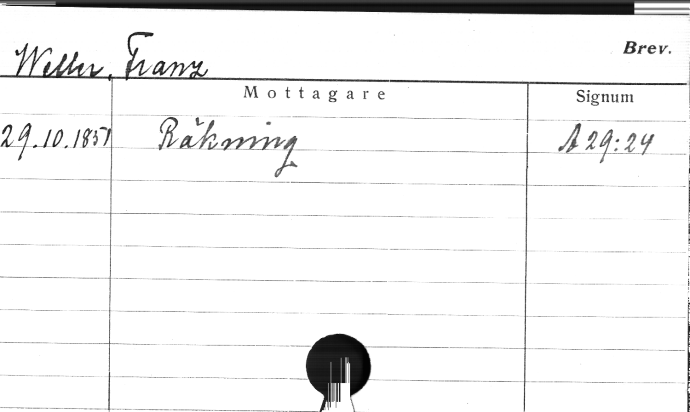 Brev.
Weller, Franz
Mottagare Signum
29.10.1851 Räkning A 29:24